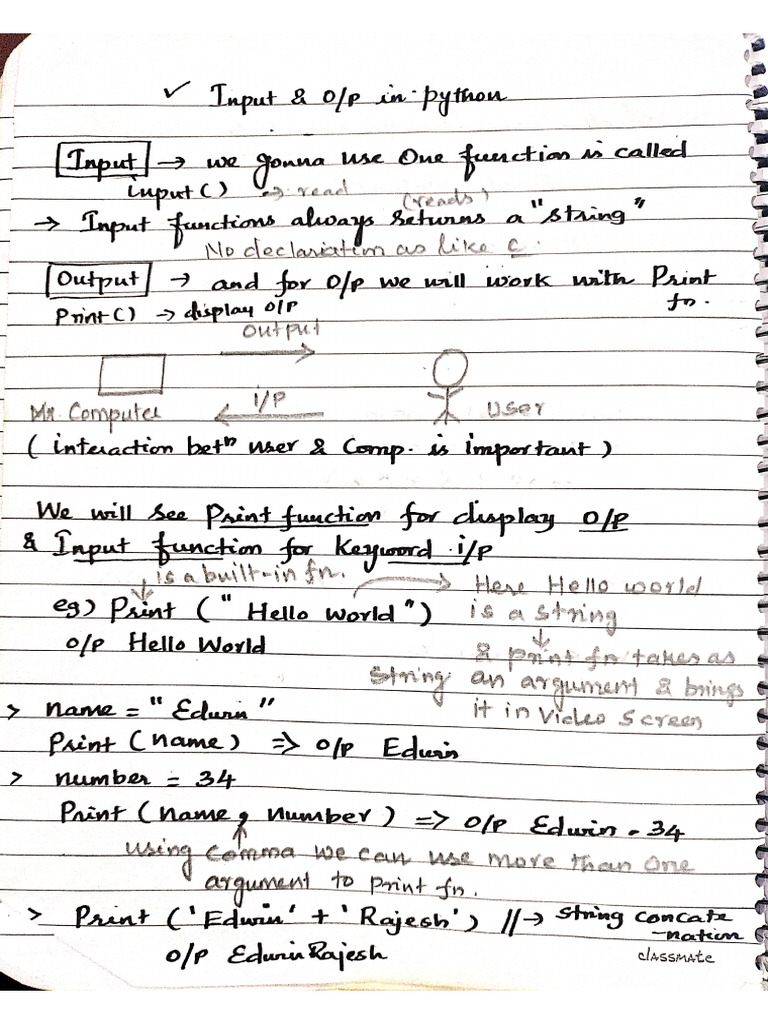 ✓ Input & O/P in python
Input → we gonna use One function is called
input() → read (reads)
→ Input functions always returns a "string"
No declaration as like c.
Output → and for O/P we will work with Print fn.
Print() → display O/P
output
i/P
Mr. Computer
User
( interaction betn user & Comp. is important )
We will see Print function for display O/P
& Input function for Keyword i/p
is a built-in fn.
Here Hello world
eg) Print (" Hello World")
is a string
O/P Hello World
& print fn takes as
string an argument & brings
it in Video Screen
> name = " Edwin "
Print (name) => O/P Edwin
> number = 34
Print (name, number) => O/P Edwin - 34
using comma we can use more than one
argument to print fn.
> Print ('Edwin' + 'Rajesh') //→ string concate
-nation
O/P EdwinRajesh
classmate